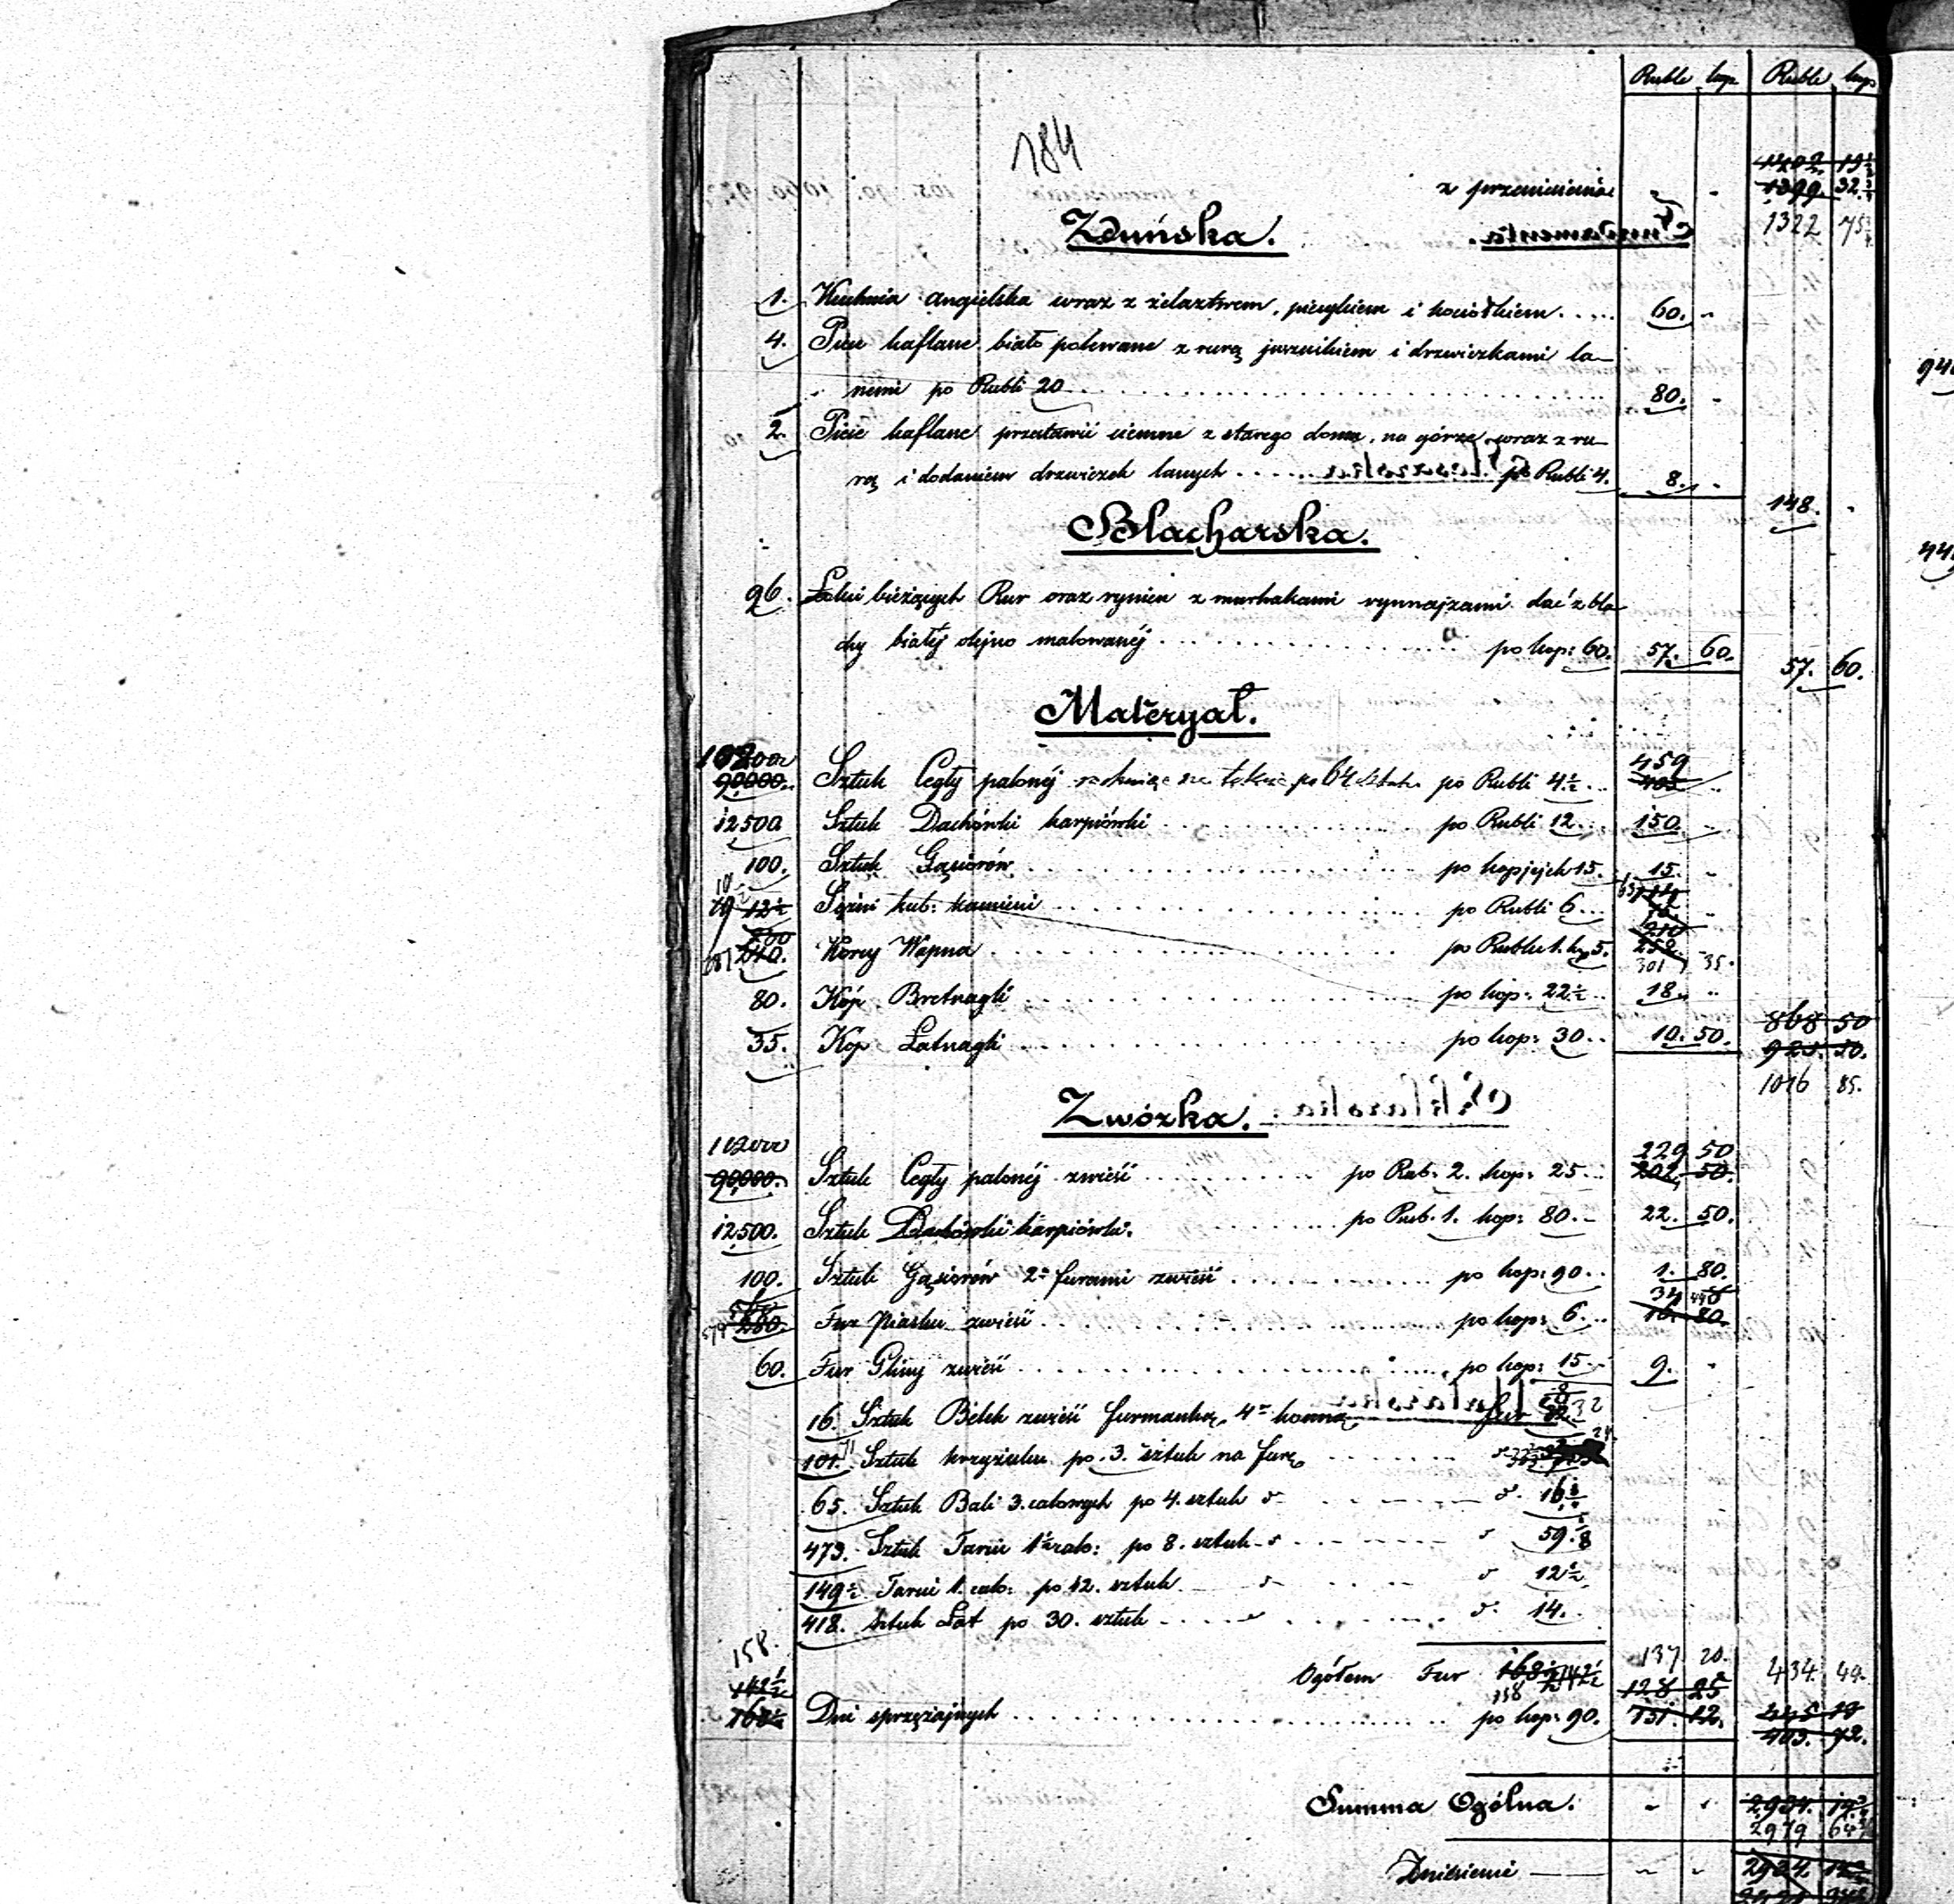 Ruble kop. Ruble kop
184
1402. 19½
z przeniesienia " " 1399. 32¾
Zduńska. 1322 75¾
1. Kuchnia angielska wraz z żelaztwem, piecykiem i kociołkiem..... 60. "
4. Piece kaflane biało polewane z rurą jusznikiem i drzwiczkami la-
nemi po Rubli 20 .......... 80. "
2. Piece kaflane przestawić ciemne z starego domu, na górze, wraz z ru-
rą i dodaniem drzwiczek lanych ........ po Rubli 4. 8. "
148. "
Blacharska.
96. Łokci bieżących Rur oraz rynien z murhakami rynnajzami dać z bla-
chy białéj olejno malowanéj .......... po kop: 60. 57. 60. 57. 60.
Materyał.
102000 459
90000. Sztuk Cegły palonéj rachując na łokieć po 64 sztuk po Rubli 4½... 405 "
12500 Sztuk Dachówki karpiówki .......... po Rubli 12... 150. "
100. Sztuk Gąsiorów .......... po kopjejek 15. 15. "
12½ Sążni kub: kamieni .......... po Rubli 6... 75. "
200 210
240. Korcy Wapna .......... po Rublu 1. k. 5. 252. "
301 35.
80. Kóp Bretnagli .......... po kop: 22½.. 18. "
868 50
35. Kóp Łatnagli .......... po kop: 30.. 10. 50. 923. 50.
1016 85.
Zwózka.
102000 229 50
90000. Sztuk Cegły palonéj zwieść .......... po Rub. 2. kop: 25... 202. 50.
12500. Sztuk Dachówki karpiówki. ........ po Rub. 1. kop: 80.- 22. 50.
100. Sztuk Gąsiorów 2ma furami zwieść .......... po kop: 90.. 1. 80.
34
280. Fur Piasku zwieść .......... po kop: 6... 16. 80.
60. Fur Gliny zwieść .......... po kop: 15.. 9. "
16. Sztuk Belek zwieść furmanką 4ro konną fur 32
101. Sztuk krzyżulcu po 3. sztuk na furę ........
65. Sztuk Bali 3. calowych po 4. sztuk d° ........ d° 16¼
473. Sztuk Tarcic 1½ calo: po 8. sztuk d° ........ d° 59⅛
149½ Tarcic 1. calo: po 12. sztuk d° ........ d° 12½
418. sztuk Łat po 30. sztuk ........ d° 14.
158.
142½ Ogółem Fur 168½ 142½ 137 20. 434. 49.
158 128 25
168½ Dni sprzężajnych .......... po kop: 90. 151. 12. 445 17
403. 72.
Summa Ogólna. " " 2934. 19¾
2979 64¾
Zniesienie — " " 2934. 19¾